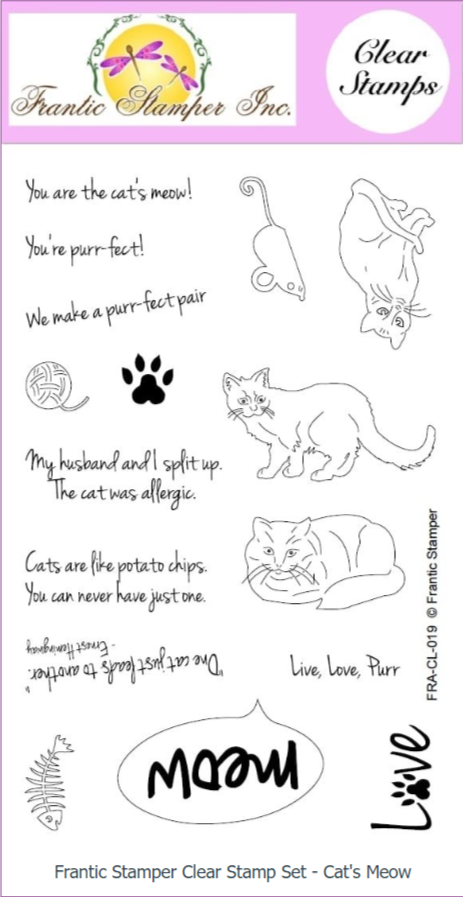 Frantic Stamper Inc.
Clear
Stamps
You are the cat's meow!
You're purr-fect!
We make a purr-fect pair
My husband and I split up.
The cat was allergic.
Cats are like potato chips.
You can never have just one.
"One cat just leads to another."
- Ernest Hemingway
Live, Love, Purr
FRA-CL-019 © Frantic Stamper
Meow
Love
Frantic Stamper Clear Stamp Set - Cat's Meow